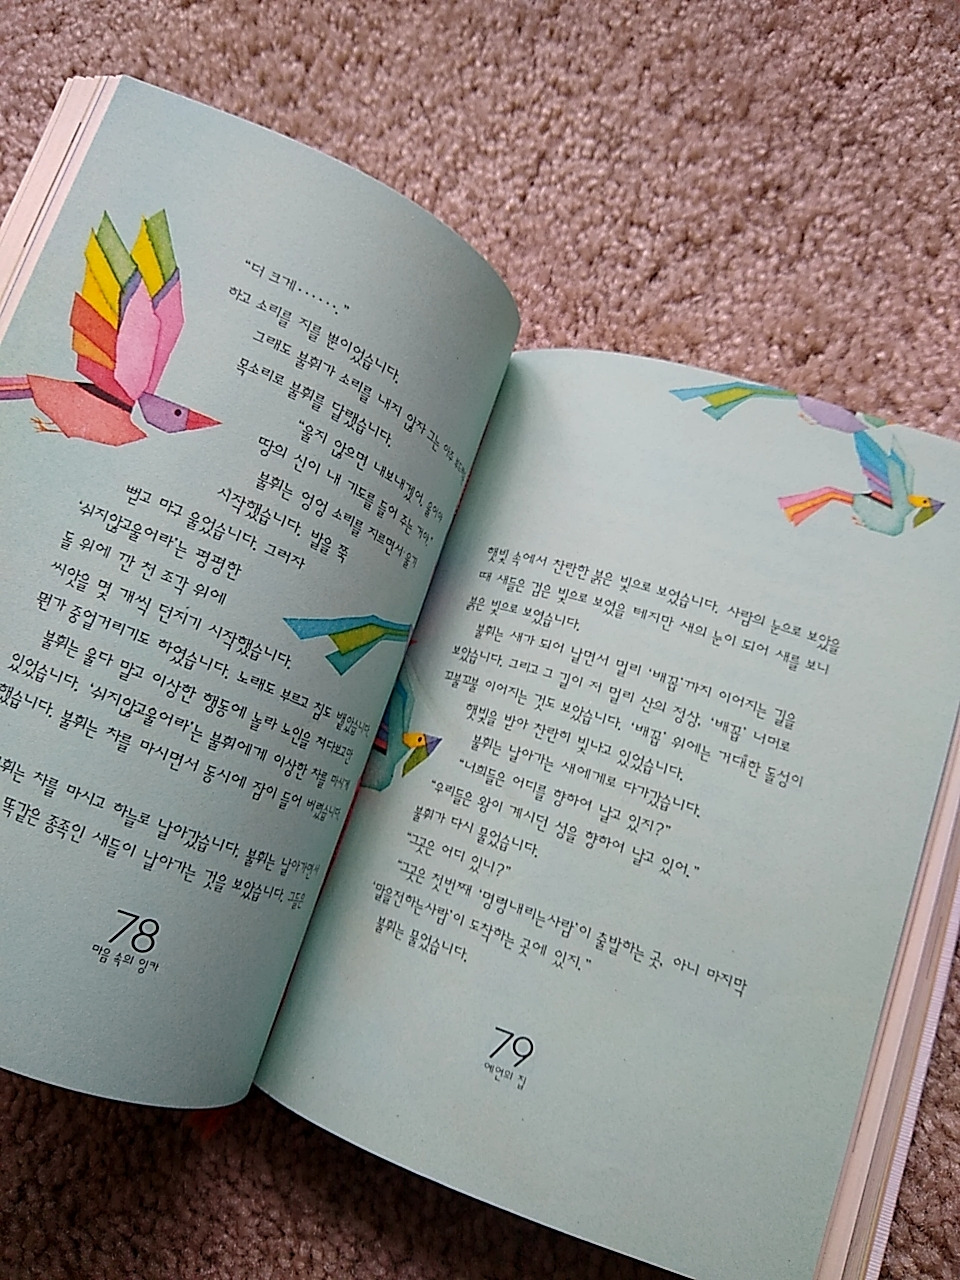 “더 크게·······.”
하고 소리를 지를 뿐이었습니다.
그래도 불휘가 소리를 내지 않자 그는 아주
목소리로 불휘를 달랬습니다.
“울지 않으면 내보내겠어. 울어야
땅의 신이 내 기도를 들어 주는 거야.”
불휘는 엉엉 소리를 지르면서 울기
시작했습니다. 발을 쭉
뻗고 마구 울었습니다. 그러자
‘쉬지않고울어라’는 평평한
돌 위에 깐 천 조각 위에
씨앗을 몇 개씩 던지기 시작했습니다.
뭔가 중얼거리기도 하였습니다. 노래도 부르고 침도 뱉았습니다.
불휘는 울다 말고 이상한 행동에 놀라 노인을 쳐다보고만
있었습니다. ‘쉬지않고울어라’는 불휘에게 이상한 차를 마시게
했습니다. 불휘는 차를 마시면서 동시에 잠이 들어 버렸습니다.
휘는 차를 마시고 하늘로 날아갔습니다. 불휘는 날아가면서
똑같은 종족인 새들이 날아가는 것을 보았습니다. 그들은
78
마음 속의 잉카
햇빛 속에서 찬란한 붉은 빛으로 보였습니다. 사람의 눈으로 보았을
때 새들은 검은 빛으로 보였을 테지만 새의 눈이 되어 새를 보니
붉은 빛으로 보였습니다.
불휘는 새가 되어 날면서 멀리 ‘배꼽’까지 이어지는 길을
보았습니다. 그리고 그 길이 저 멀리 산의 정상, ‘배꼽’ 너머로
꼬불꼬불 이어지는 것도 보았습니다. ‘배꼽’ 위에는 거대한 돌성이
햇빛을 받아 찬란히 빛나고 있었습니다.
불휘는 날아가는 새에게로 다가갔습니다.
“너희들은 어디를 향하여 날고 있지?”
“우리들은 왕이 계시던 성을 향하여 날고 있어.”
불휘가 다시 물었습니다.
“그곳은 어디 있니?”
“그곳은 첫번째 ‘명령내리는사람’이 출발하는 곳, 아니 마지막
‘말을전하는사람’이 도착하는 곳에 있지.”
불휘는 물었습니다.
79
예언의 집